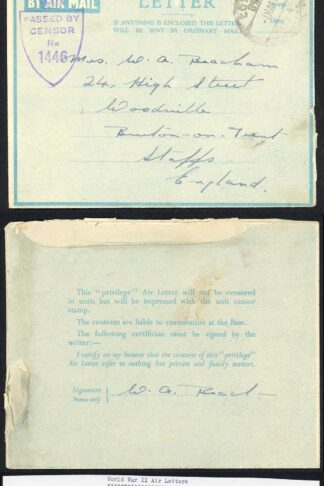 BY AIR MAIL
LETTER
IF ANYTHING IS ENCLOSED THIS LETTER
WILL BE SENT BY ORDINARY MAIL
Stamp
Here
PASSED BY
CENSOR
No
1446
Mrs. W. A. Beacham
24, High Street
Woodville
Burton-on-Trent
Staffs
England.
This "privilege" Air Letter will not be censored
in units but will be impressed with the unit censor
stamp.
The contents are liable to examination at the Base.
The following certificate must be signed by the
writer:—
I certify on my honour that the contents of this "privilege"
Air Letter refer to nothing but private and family matters.
Signature
Name only
W. A. Beach
World War II Air Letters